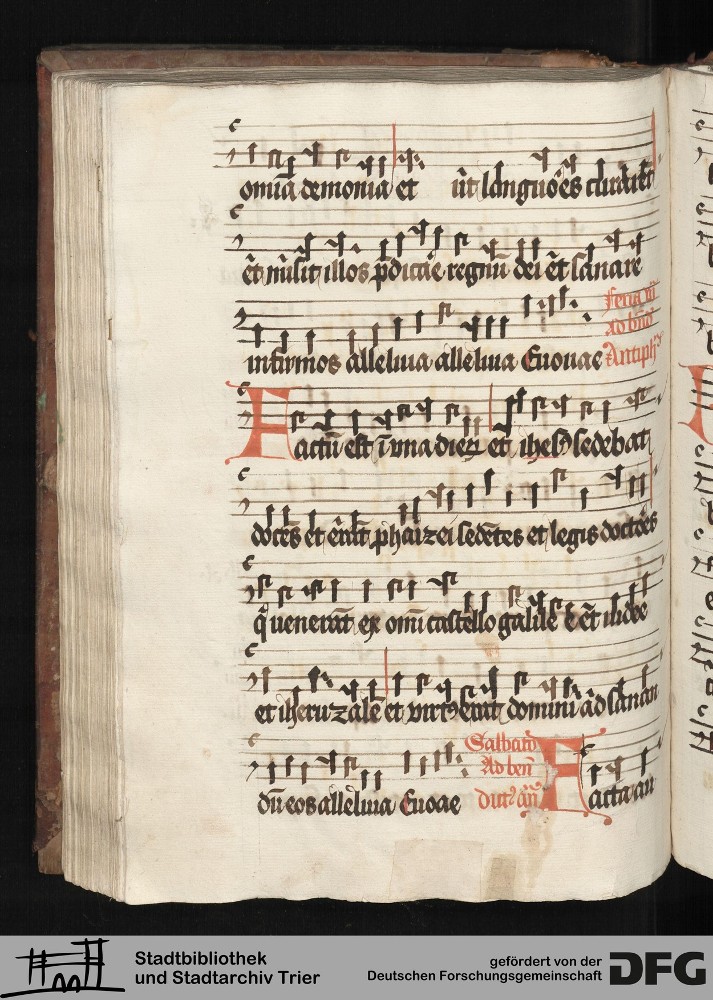 omnia demonia et ut languoēs curarēt
et misit illos p̄dicare regnū dei et sanare
infirmos alleluia alleluia Euouae
Feria vi
ad bn̄d
Antiph
Factū est ī vna dierꝫ et ihesꝰ sedebat
docēs et erāt pharizei sedētes et legis doctoēs
q̄ venerāt ex omī castello galilee et iudee
et iheruzalē et virtꝰ erat domini ad sanan
dū eos alleluia Euoae
Salbato
Ad ben
dictꝰ an̄
Facta an
Stadtbibliothek
und Stadtarchiv Trier
gefördert von der
Deutschen Forschungsgemeinschaft
DFG